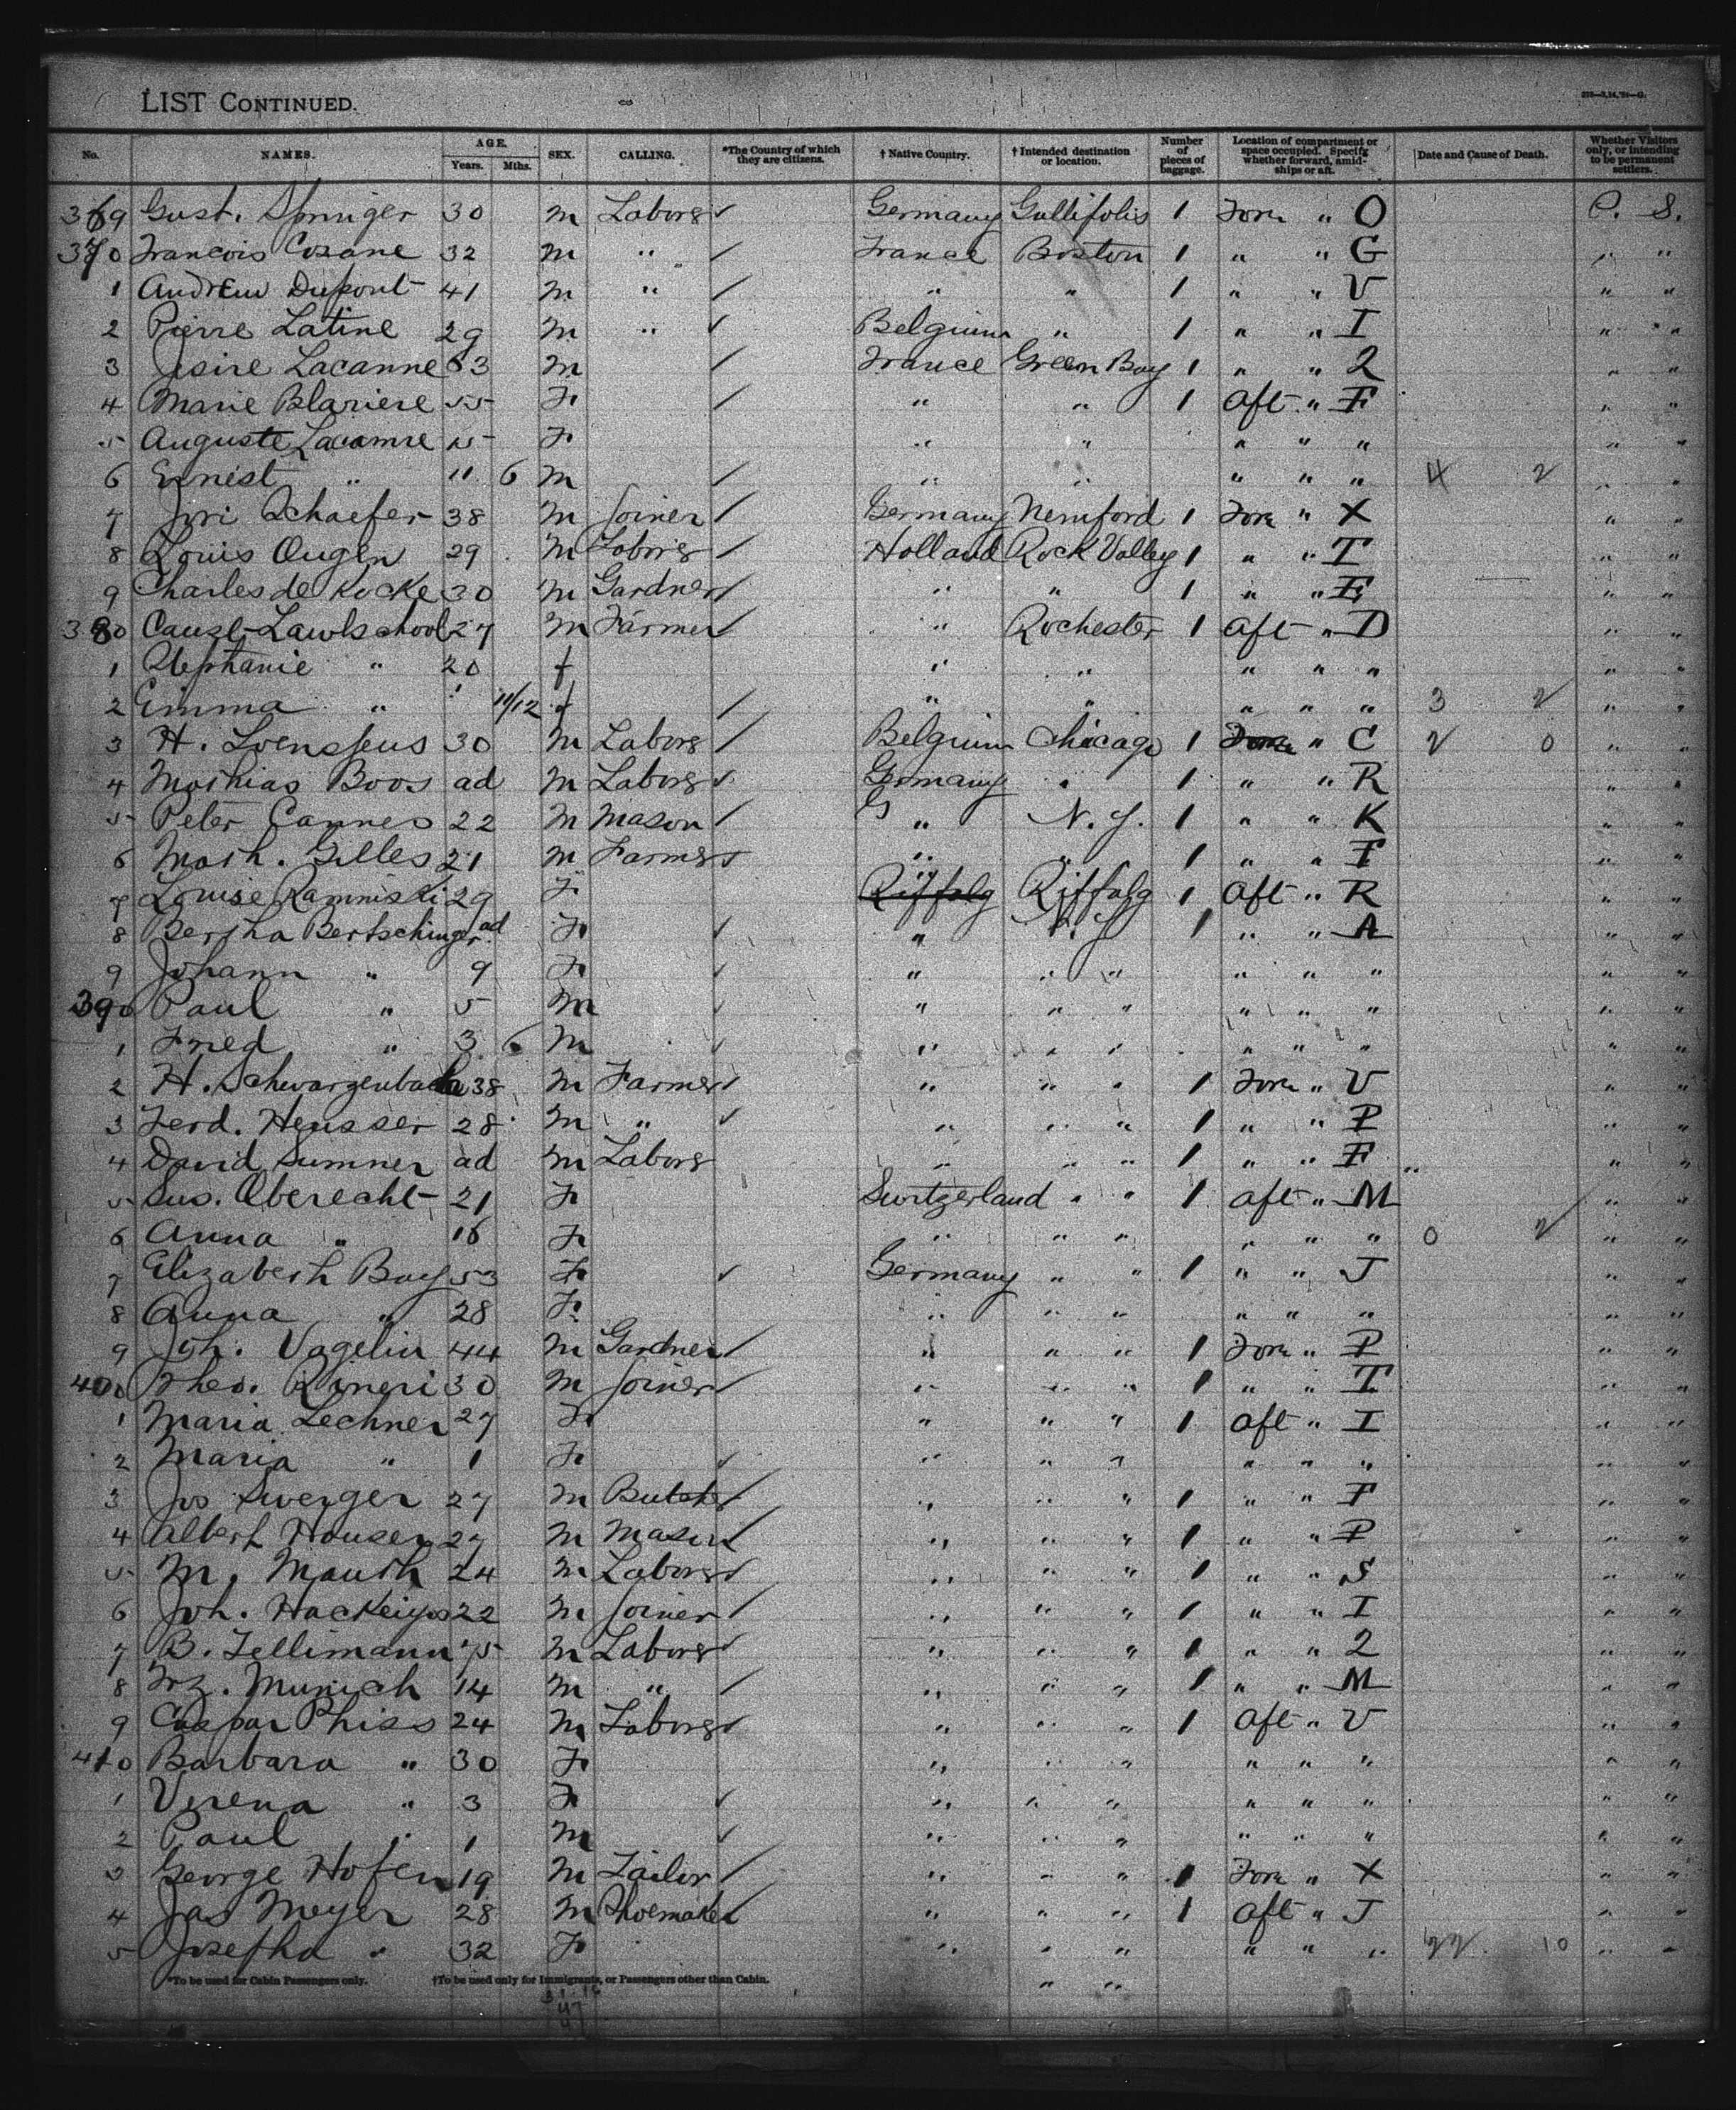 LIST CONTINUED.
No. NAMES. AGE. Years. Mths. SEX. CALLING. *The Country of which they are citizens. † Native Country. † Intended destination or location. Number of pieces of baggage. Location of compartment or space occupied. Specify whether forward, amidships or aft. Date and Cause of Death. Whether Visitors only, or intending to be permanent settlers.
369 Gust. Springer 30 M Laborer ✓ Germany Gallifolis 1 Fore " O P. S.
370 Francois Cosane 32 M " ✓ France Boston 1 " " G " "
1 Andrew Dupont 41 M " ✓ " " 1 " " V " "
2 Pierre Latine 29 M " ✓ Belgium " 1 " " I " "
3 Desire Lacanne 63 M ✓ France Green Bay 1 " " 2 " "
4 Marie Blariere 55 F ✓ " " 1 Aft " F " "
5 Auguste Lacamre 15 F " " " " " " "
6 Ernest " 11 6 M ✓ " " " " " 4 2 " "
7 Jori Schaefer 38 M Joiner ✓ Germany 1 Fore " X " "
8 Louis Ougen 29 M Laborer ✓ Holland Rock Valley 1 " " T " "
9 Charles de Kocke 30 M Gardner ✓ " " 1 " " E " "
380 27 M Farmer ✓ " Rochester 1 Aft " D " "
1 Stephanie " 20 f " " " " " " "
2 Emma " 11/12 f ✓ " " " " " 3 2 " "
3 H. 30 M Laborer ✓ Belgium Chicago 1 Fore " C 2 0 " "
4 Mathias Boos ad M Laborer ✓ Germany " 1 " " R " "
5 Peter Cannes 22 M Mason ✓ " N. Y. 1 " " K " "
6 Math. Gilles 21 M Farmer ✓ " " 1 " " I " "
7 Louise Raminski 29 F Riffalg Riffalg 1 Aft " R " "
8 Bertha Bertschinger ad F ✓ " N. Y 1 " " A " "
9 Johann " 9 F ✓ " " " " " " " "
390 Paul " 5 M ✓ " " " " " " " "
1 Fried " 3 6 M ✓ " " " " " " " "
2 H. Schwarzenbach 38 M Farmer ✓ " " " 1 Fore " V " "
3 Ferd. Heusser 28 M " ✓ " " " 1 " " P " "
4 David Sumner ad M Laborer " " " 1 " " F " "
5 Sus. Oberecht 21 F Switzerland " " 1 Aft " M " "
6 Anna " 16 F " " " " " " 0 2 " "
7 Elizabeth Bay 53 F ✓ Germany " " 1 " " J " "
8 Anna " 28 F " " " " " " " "
9 Joh. Vogelin 44 M Gardner ✓ " " " 1 Fore " P " "
400 Theo. Rineri 30 M Joiner ✓ " " " 1 " " T " "
1 Maria Lechner 27 F " " " 1 Aft " I " "
2 Maria " 1 F ✓ " " " " " " " "
3 Jos Swerger 27 M Butcher ✓ " " " 1 " " F " "
4 Albert Hauser 27 M Mason ✓ " " " 1 " " P " "
5 M. Mauth 24 M Laborer ✓ " " " 1 " " S " "
6 Joh. 22 M Joiner ✓ " " " 1 " " I " "
7 B. Tellimann 75 M Laborer ✓ " " " 1 " " 2 " "
8 Frz. Munich 14 M " ✓ " " " 1 " " M " "
9 Caspar Phiss 24 M Laborer ✓ " " " 1 Aft " V " "
410 Barbara " 30 F " " " " " " " "
1 Verena " 3 F ✓ " " " " " " " "
2 Paul " 1 M ✓ " " " " " " " "
3 George Hofen 19 M Tailor ✓ " " " 1 Fore " X " "
4 Jas Meyer 28 M Shoemaker ✓ " " " 1 Aft " J " "
5 Josepha " 32 F " " " " " " 22 10 " "
*To be used for Cabin Passengers only. †To be used only for Immigrants, or Passengers other than Cabin. " "